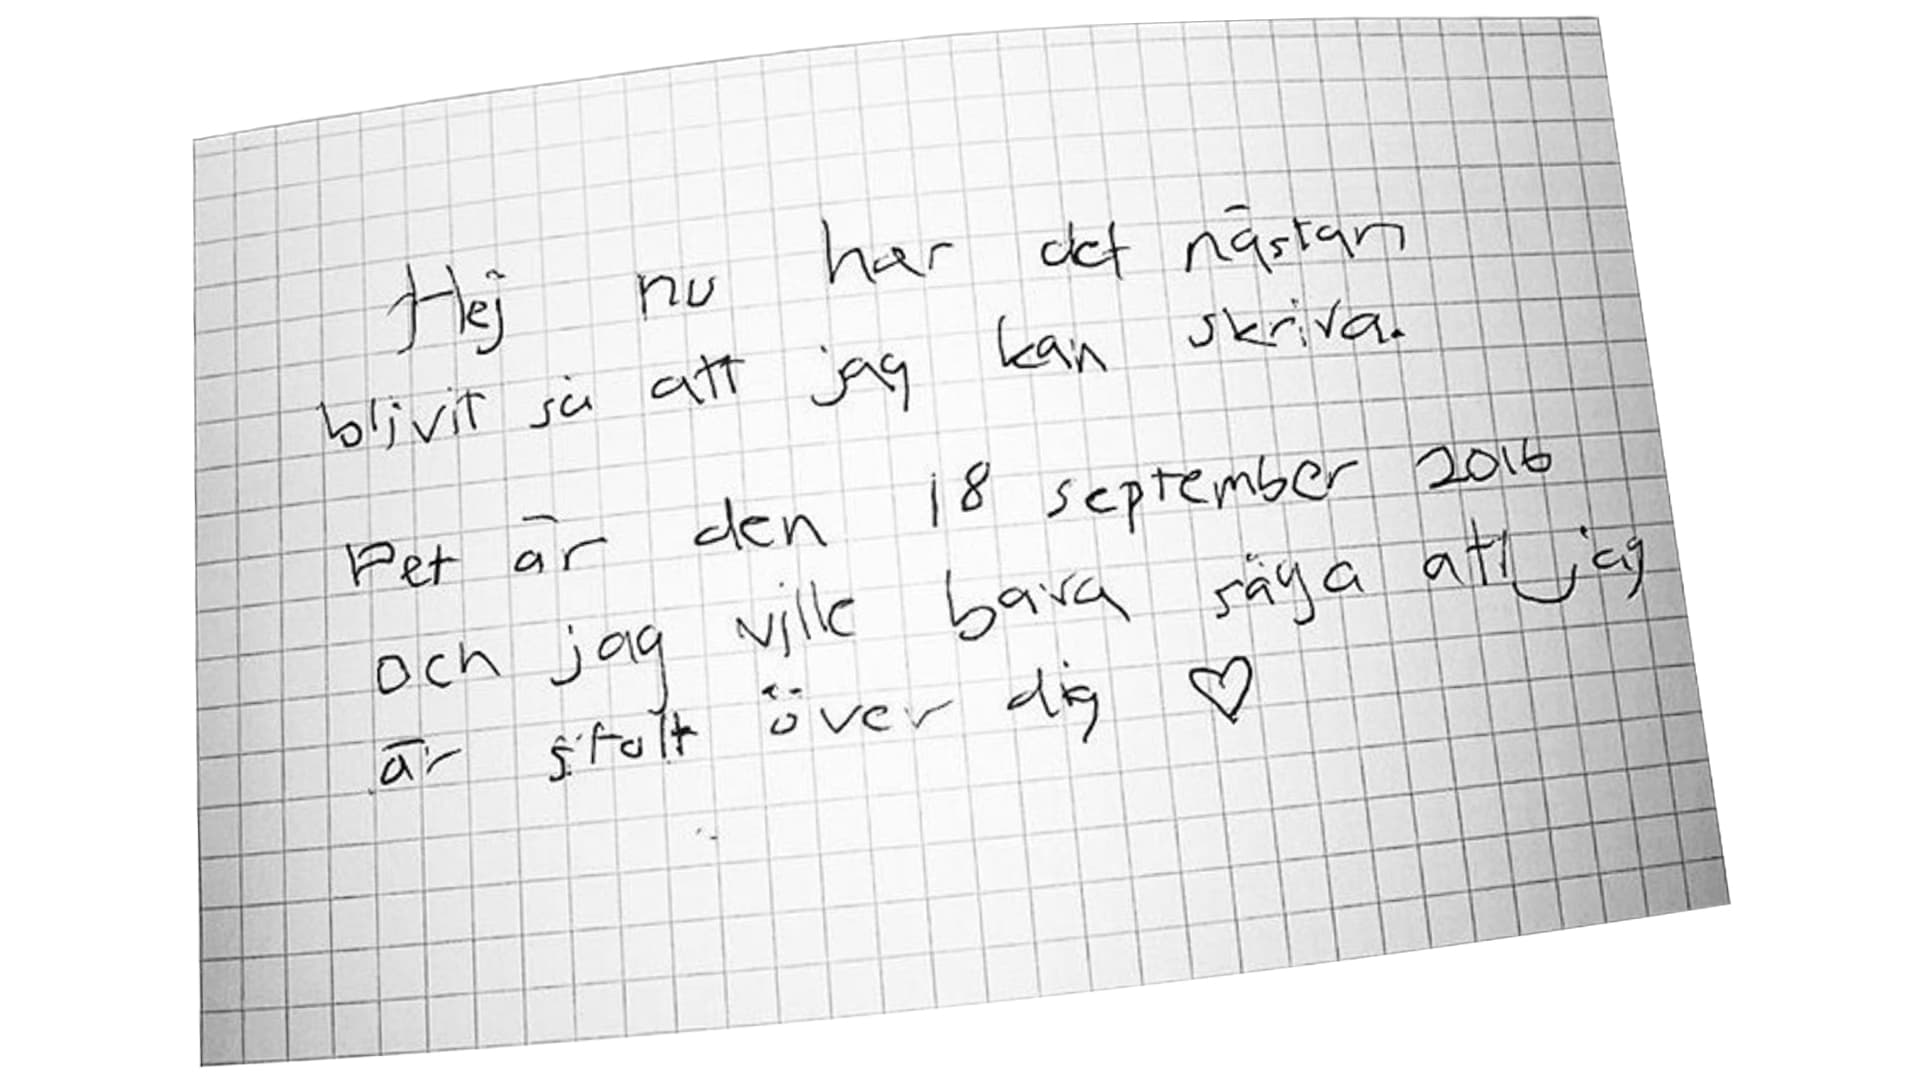 Hej nu har det nästan
blivit så att jag kan skriva.
Det är den 18 september 2016
och jag ville bara säga att jag
är stolt över dig ♡